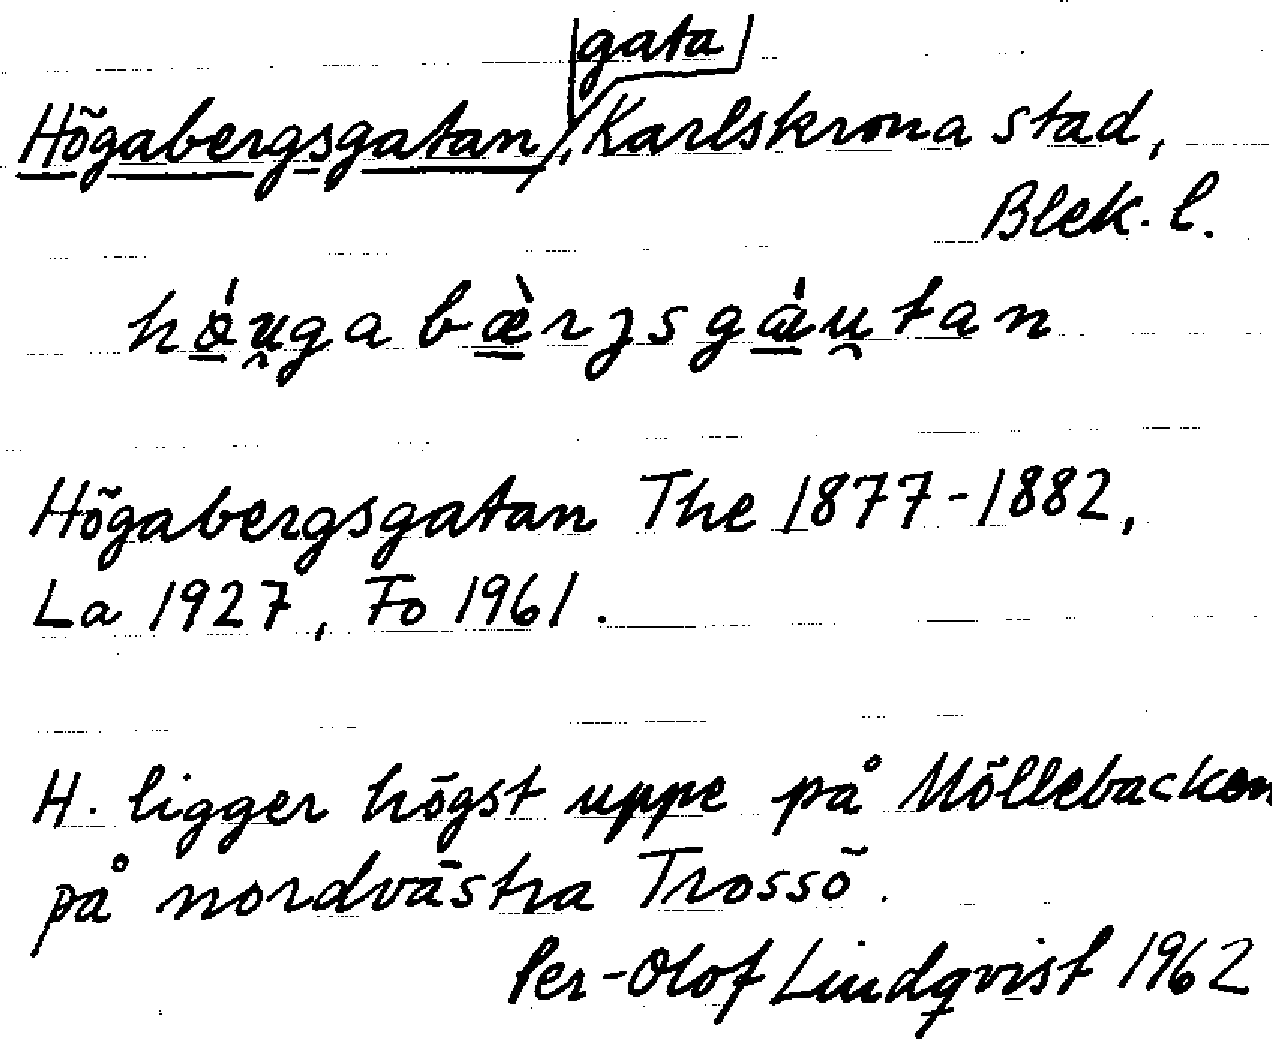 gata
Högabergsgatan, Karlskrona stad,
Blek. l.
hǿu̯gabæ̀rʒsgáu̯tan
Högabergsgatan The 1877-1882,
La 1927, Fo 1961.
H. ligger högst uppe på Möllebacken
på nordvästra Trossö.
Per-Olof Lindqvist 1962